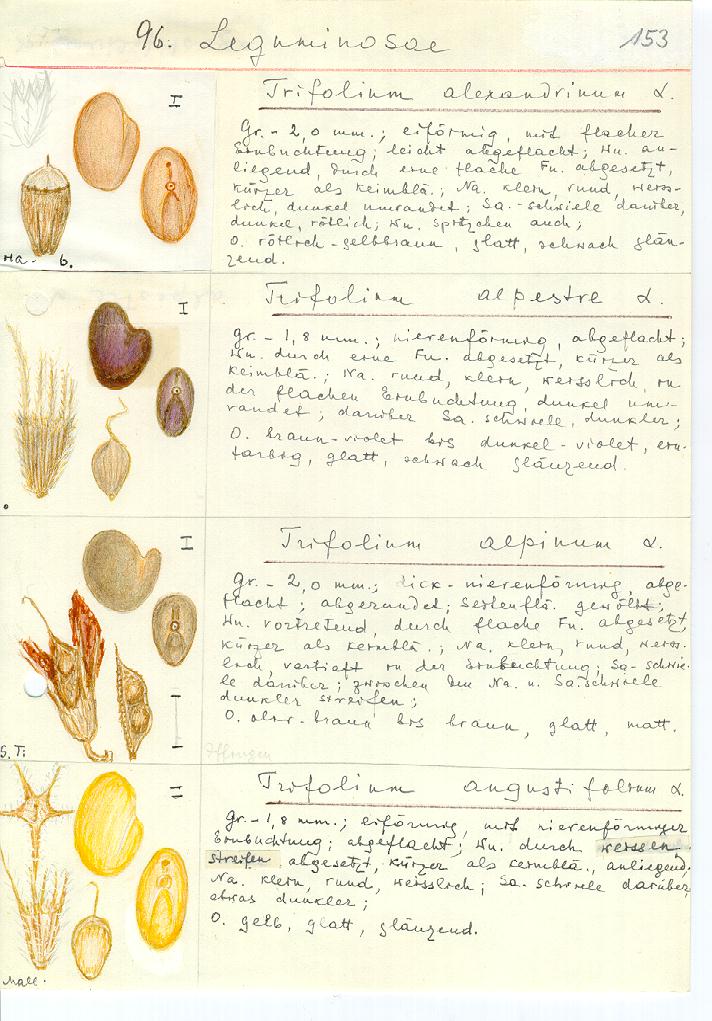 96. Leguminosae
153
Trifolium alexandrinum L.
Gr. - 2,0 mm.; eiförmig, mit flacher
Einbuchtung; leicht abgeflacht; Wu. an-
liegend, durch eine flache Fu. abgesetzt,
kürzer als Keimblä.; Na. klein, rund, weiss-
lich, dunkel umrandet; Sa.-schwiele darüber,
dunkel, rötlich; Wu. spitzchen auch;
O. rötlich-gelbbraun, glatt, schwach glän-
zend.
Ha- b.
Trifolium alpestre L.
gr. - 1,8 mm.; nierenförmig, abgeflacht;
Wu. durch eine Fu. abgesetzt, kürzer als
Keimblä.; Na. rund, klein, weisslich, in
der flachen Einbuchtung, dunkel um-
randet; darüber Sa. schwiele, dunkler;
O. braun-violet bis dunkel-violet, ein-
farbig, glatt, schwach glänzend.
Trifolium alpinum L.
gr. - 2,0 mm.; dick-nierenförmig, abge-
flacht; abgerundet; Seitenflä. gewölbt;
Wu. vortretend, durch flache Fu. abgesetzt,
kürzer als keimblä.; Na. klein, rund, weiss-
lich, vertieft in der Einbuchtung; Sa-schwie-
le darüber; zwischen den Na. u. Sa.schwiele
dunkler streifen;
O. oliv-braun bis braun, glatt, matt.
S. Ti
Trifolium angustifolium L.
gr. - 1,8 mm.; eiförmig, mit nierenförmiger
Einbuchtung; abgeflacht; Wu. durch weissen
streifen abgesetzt, kürzer als keimblä., anliegend.
Na. klein, rund, weisslich; Sa. schwiele darüber,
etwas dunkler;
O. gelb, glatt, glänzend.
Mall.